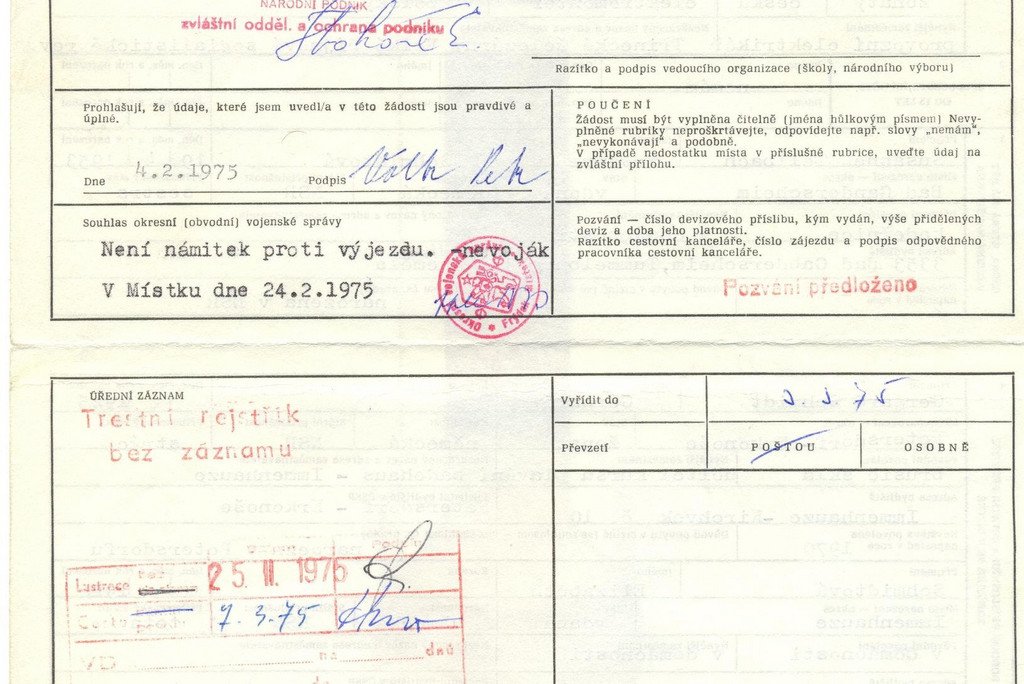 NÁRODNÍ PODNIK
zvláštní odděl. a ochrana podniku
Razítko a podpis vedoucího organizace (školy, národního výboru)
Prohlašuji, že údaje, které jsem uvedl/a v této žádosti jsou pravdivé a
úplné.
Dne 4.2.1975 Podpis
POUČENÍ
Žádost musí být vyplněna čitelně (jména hůlkovým písmem) Nevy-
plněné rubriky neproškrtávejte, odpovídejte např. slovy „nemám",
„nevykonávají" a podobně.
V případě nedostatku místa v příslušné rubrice, uveďte údaj na
zvláštní přílohu.
Souhlas okresní (obvodní) vojenské správy
Není námitek proti výjezdu. -nevoják
V Místku dne 24.2.1975
Pozvání — číslo devizového příslibu, kým vydán, výše přidělených
deviz a doba jeho platnosti.
Razítko cestovní kanceláře, číslo zájezdu a podpis odpovědného
pracovníka cestovní kanceláře.
Pozvání předloženo
ÚŘEDNÍ ZÁZNAM
Trestní rejstřík
bez záznamu
Vyřídit do
Převzetí POŠTOU OSOBNĚ
Lustrace 25 II. 1975
7.3.75
VB na dnů